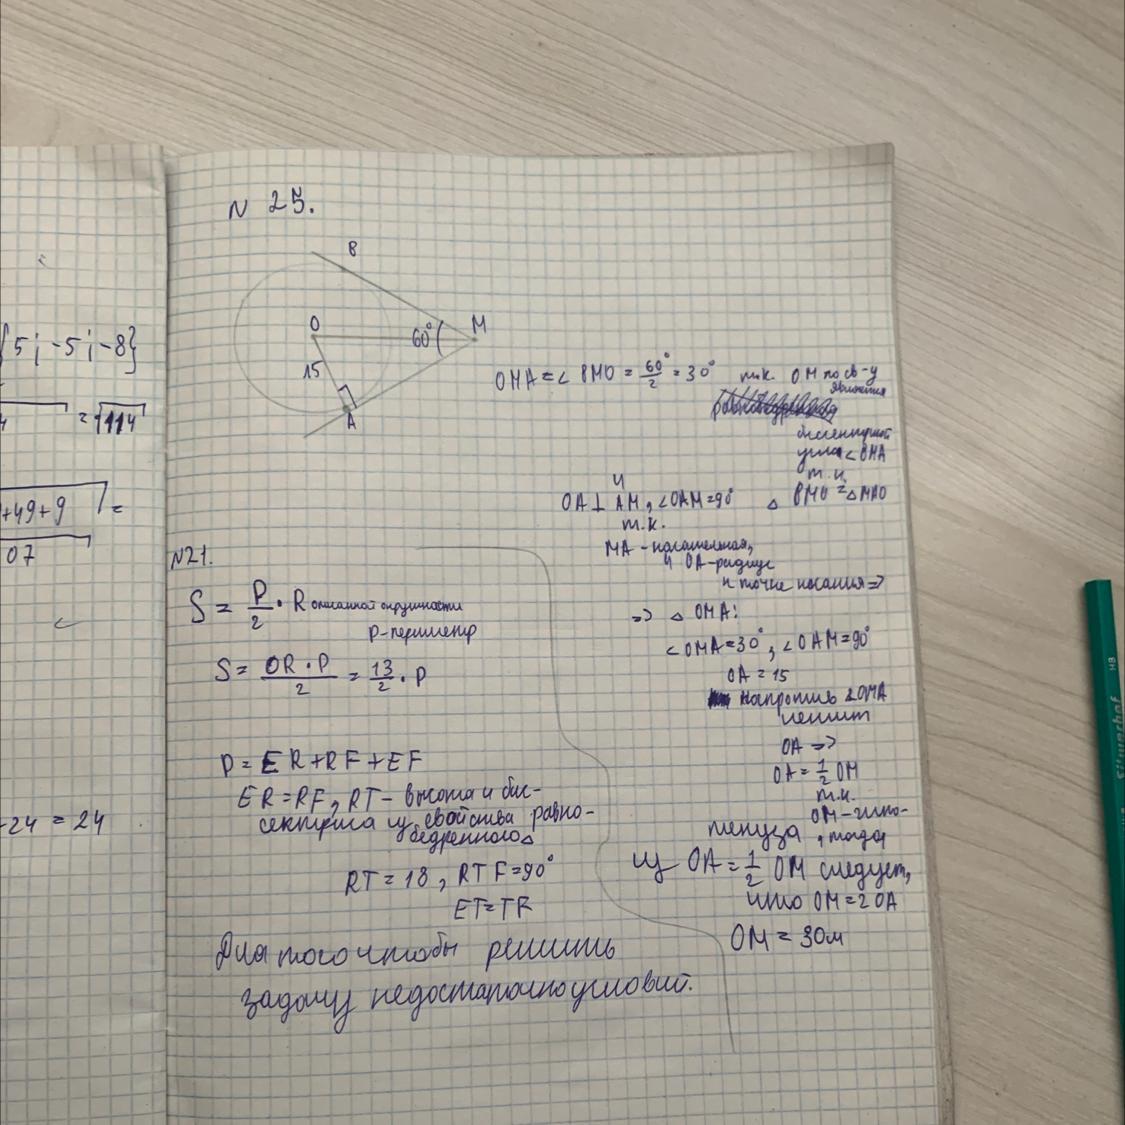 {5; -5; -8}
= √114
+49+9 =
07
-24 = 24
N 25.
B
O
M
60°
15
A
OMA = ∠ BMO = 60°/2 = 30° т.к. OM по св-у
является
биссектрисой
угла ∠ OMA
т.к.
△ BMO = △ MAO
и
OA ⊥ AM, ∠OAM = 90°
т.к.
MA - касательная,
и OA - радиус
к точке касания =>
=> △ OMA:
∠OMA = 30°, ∠OAM = 90°
OA = 15
Напротив ∠OMA
лежит
OA =>
OA = 1/2 OM
т.к.
OM - гипо-
тенуза, тогда
из OA = 1/2 OM следует,
что OM = 2OA
OM = 30м
N21.
S = P/2 · R описанной окружности
P - периметр
S = OR · P / 2 = 13/2 · P
P = ER + RF + EF
ER = RF, RT - высота и бис-
сектриса из свойства равно-
бедренного △
RT = 18, RTF = 90°
ET = TF
Для того чтобы решить
задачу недостаточно условий.
HB